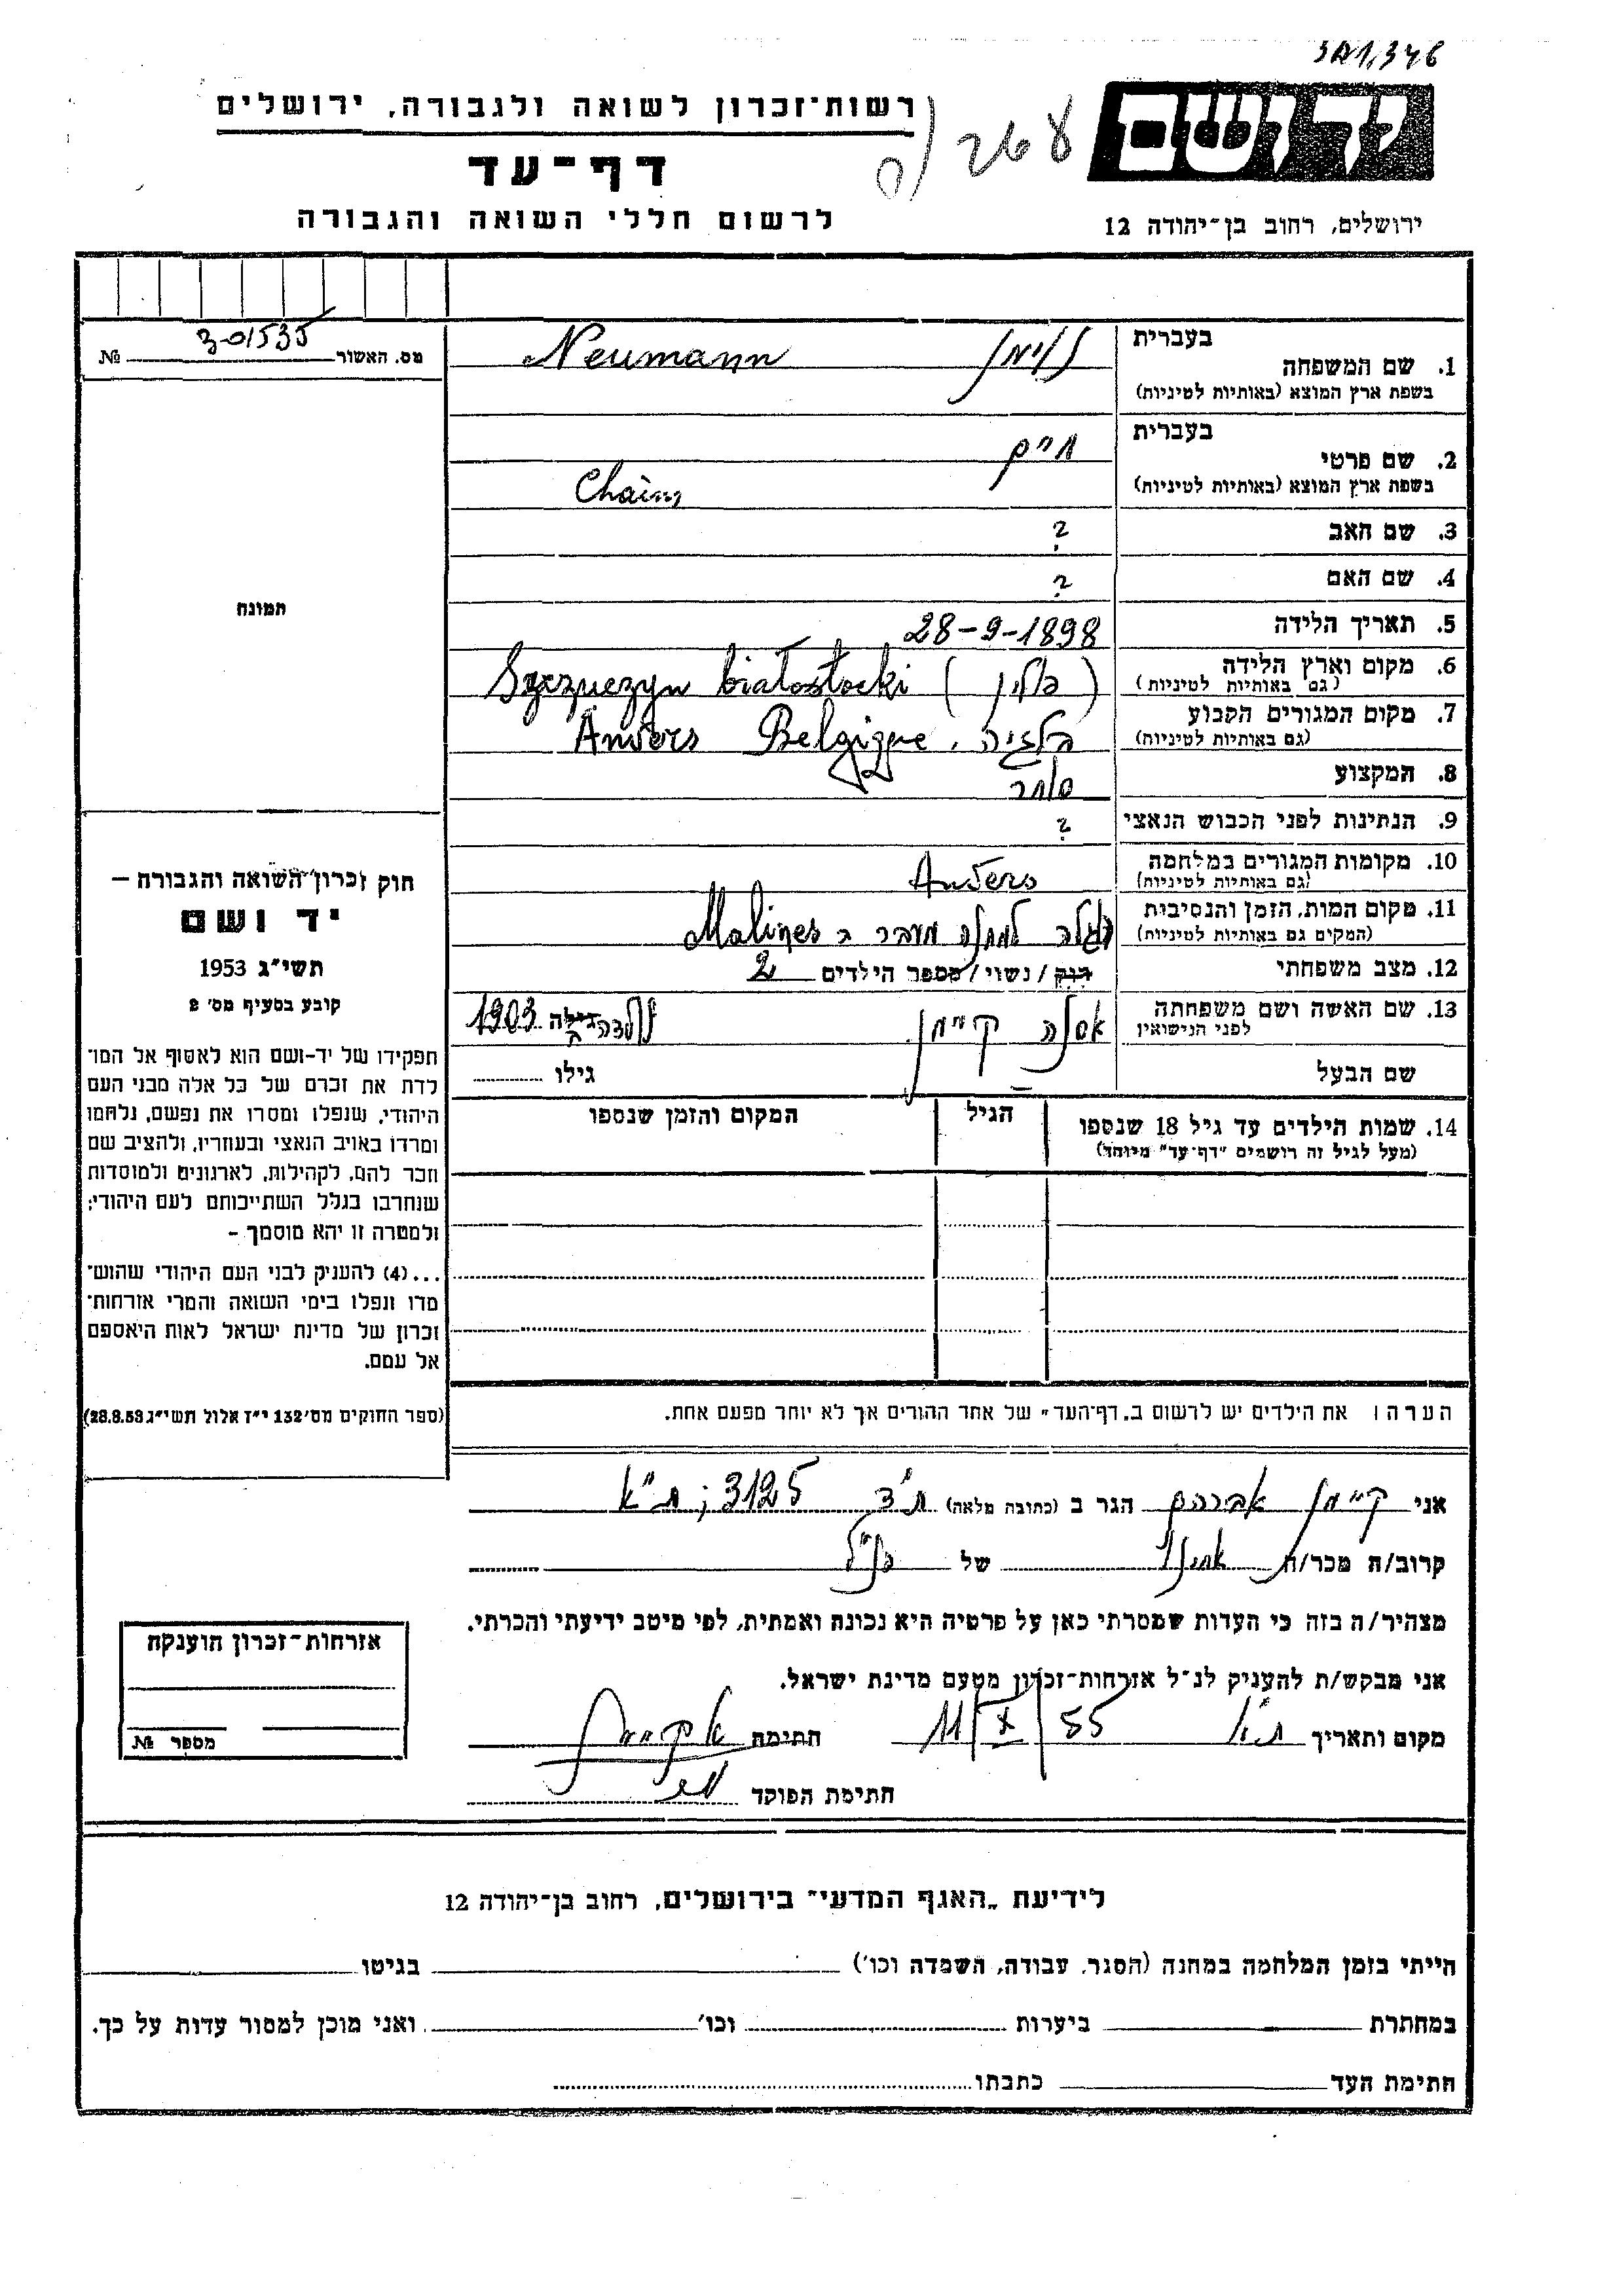 יד ושם
ירושלים, רחוב בן־יהודה 12
רשות־זכרון לשואה ולגבורה, ירושלים
דף־עד
לרשום חללי השואה והגבורה
מס. האשור 301535 №
תמונה
1. שם המשפחה בעברית נוימן Neumann
בשפת ארץ המוצא (באותיות לטיניות)
2. שם פרטי בעברית חיים
בשפת ארץ המוצא (באותיות לטיניות) Chaim
3. שם האב ?
4. שם האם ?
5. תאריך הלידה 28-9-1898
6. מקום וארץ הלידה (גם באותיות לטיניות) (פולין) białostocki
7. מקום המגורים הקבוע (גם באותיות לטיניות) בלגיה, Anvers Belgique
8. המקצוע סוחר
9. הנתינות לפני הכבוש הנאצי ?
10. מקומות המגורים במלחמה (גם באותיות לטיניות) Anvers
11. מקום המות, הזמן והנסיבות (המקום גם באותיות לטיניות) הוגלה למחנה מעבר ב Malines
12. מצב משפחתי רווק / נשוי / מספר הילדים 2
13. שם האשה ושם משפחתה לפני הנישואין קיימן גילה נולדה ב 1903
שם הבעל גילו
14. שמות הילדים עד גיל 18 שנספו (מעל לגיל זה רושמים "דף־עד" מיוחד) הגיל המקום והזמן שנספו
הערה: את הילדים יש לרשום ב„דף־העד" של אחד ההורים אך לא יותר מפעם אחת.
חוק זכרון השואה והגבורה —
יד ושם
תשי״ג 1953
קובע בסעיף מס׳ 2
תפקידו של יד־ושם הוא לאסוף אל המו־
לדת את זכרם של כל אלה מבני העם
היהודי, שנפלו ומסרו את נפשם, נלחמו
ומרדו באויב הנאצי ובעוזריו, ולהציב שם
וזכר להם, לקהילות, לארגונים ולמוסדות
שנחרבו בגלל השתייכותם לעם היהודי;
ולמטרה זו יהא מוסמך -
...(4) להעניק לבני העם היהודי שהוש־
מדו ונפלו בימי השואה והמרי אזרחות־
זכרון של מדינת ישראל לאות היאספם
אל עמם.
(ספר החוקים מס׳ 132 י״ז אלול תשי״ג 28.8.53)
אני קיימן אברהם הגר ב (כתובת מלאה) ת״ד 3125; ת״א
קרוב/ה מכר/ה של הנ״ל
מצהיר/ה בזה כי העדות שמסרתי כאן על פרטיה היא נכונה ואמתית, לפי מיטב ידיעתי והכרתי.
אני מבקש/ת להעניק לנ״ל אזרחות־זכרון מטעם מדינת ישראל.
מקום ותאריך ת״א 11/X/55 חתימה
חתימת הפוקד
אזרחות־זכרון הוענקה
מספר №
לידיעת „האגף המדעי״ בירושלים, רחוב בן־יהודה 12
הייתי בזמן המלחמה במחנה (הסגר, עבודה, השמדה וכו׳) בגיטו
במחתרת ביערות וכו׳ ואני מוכן למסור עדות על כך.
חתימת העד כתבתו